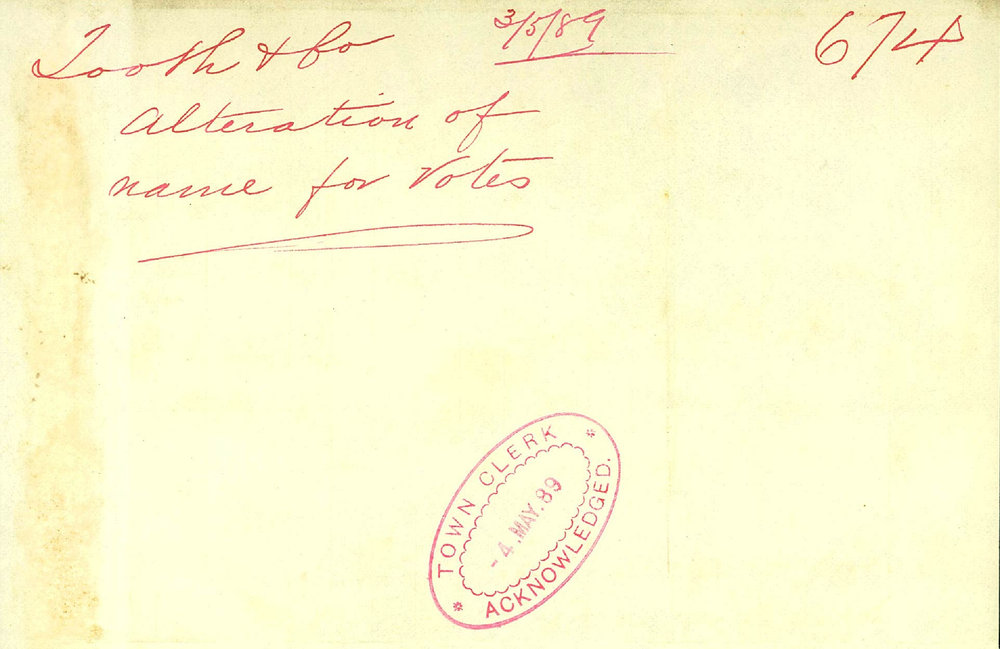 Tooth & Co 3/5/89 674
Alteration of
name for Votes
TOWN CLERK
- 4. MAY. 89
ACKNOWLEDGED.